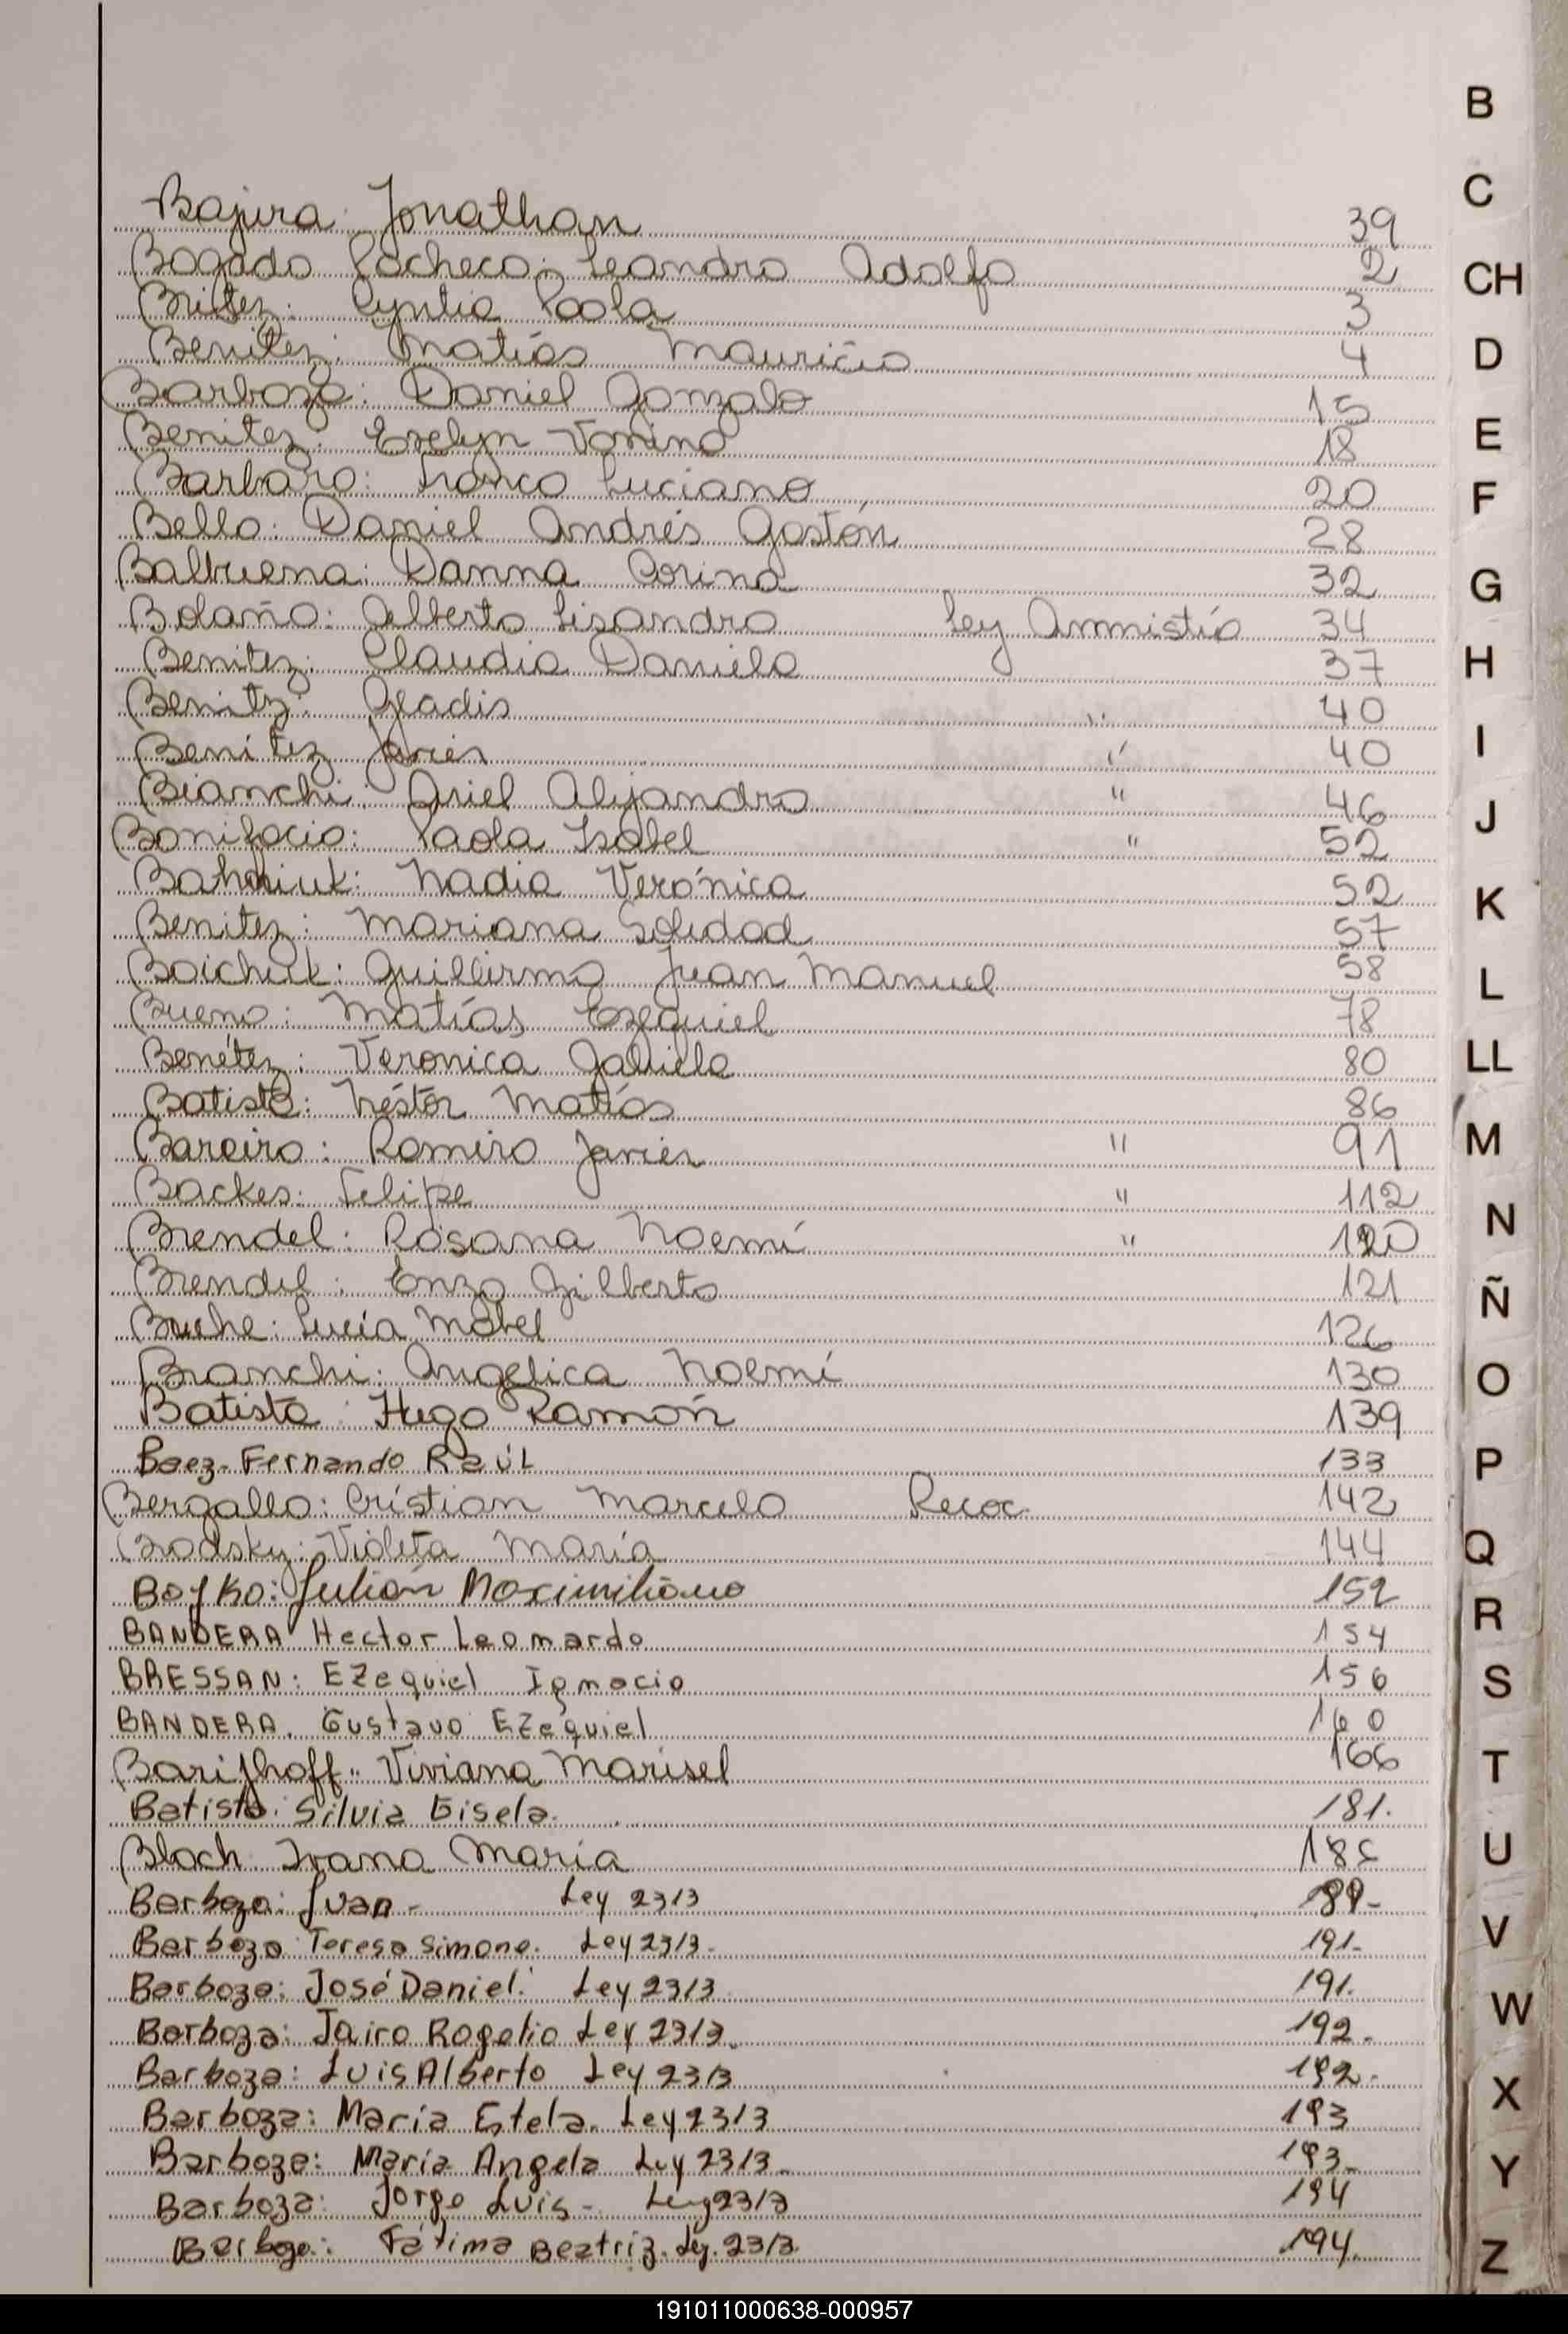 Bajura: Jonathan 39
Bogado Pacheco: Leandro Adolfo 2
Britez: Cyntia Paola 3
Benitez: Matías Mauricio 4
Barboza: Daniel Gonzalo 15
Benitez: Evelyn Yanina 18
Barbaro: Franco Luciano 20
Bello: Daniel Andrés Gastón 28
Balbuena: Danna Corina 32
Bolaño: Alberto Lisandro Ley Amnistía 34
Benitez: Claudia Daniela 37
Benitz: Gladis " 40
Benitez Javier " 40
Bianchi: Ariel Alejandro " 46
Bonifacio: Paola Isabel " 52
Bahniuk: Nadia Verónica 52
Benitez: Mariana Soledad 57
Boichuk: Guillermo Juan Manuel 58
Bueno: Matías Ezequiel 78
Benítez: Veronica Gabriela 80
Batista: Néstor Matías 86
Bareiro: Ramiro Javier " 91
Backes: Felipe " 112
Brendel: Rosana Noemí " 120
Brendel: Enzo Gilberto 121
Bruche: Lucía Mabel 126
Branchi: Angelica Noemí 130
Batista: Hugo Ramón 139
Baez- Fernando Raúl 133
Bergallo: Cristian Marcelo Recoc. 142
Brodsky: Violeta María 144
Boyko: Julián Maximiliano 152
BANDERA Hector Leonardo 154
BRESSAN: Ezequiel Ignacio 156
BANDERA. Gustavo Ezequiel 160
Barijhoff.. Viviana Marisel 166
Batista: Silvia Gisela. 181.
Bloch Ivana María
Barboza: Juan - Ley 2313
Barboza Teresa Simona. Ley 2313. 191.
Barboza: José Daniel. Ley 2313. 191.
Barboza: Jairo Rogelio Ley 2313. 192.
Barboza: Luis Alberto Ley 2313 192.
Barboza: María Estela. Ley 2313 193
Barboza: María Angela Ley 2313. 193.
Barboza: Jorge Luis - Ley 2313 194
Barboza: Fátima Beatriz. Ley. 2313. 194.
B
C
CH
D
E
F
G
H
I
J
K
L
LL
M
N
Ñ
O
P
Q
R
S
T
U
V
W
X
Y
Z
191011000638-000957